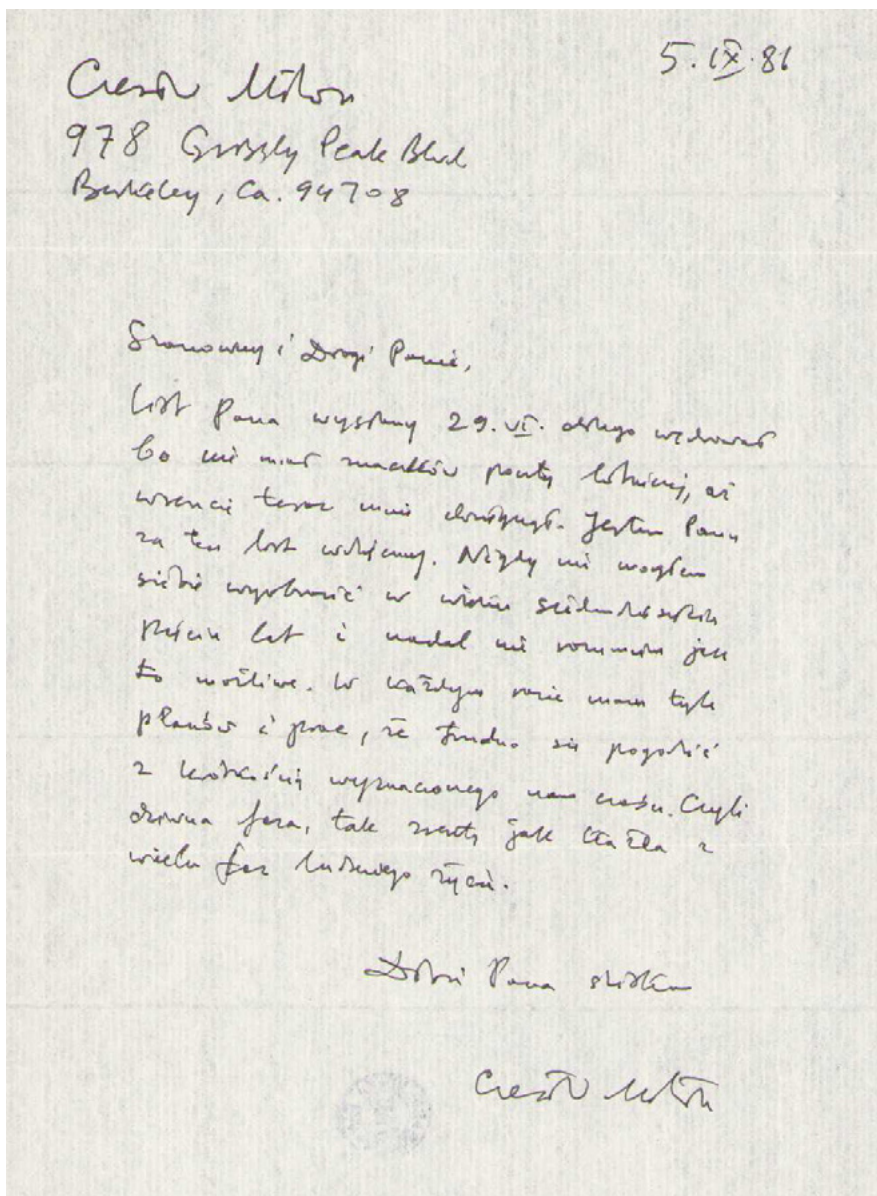 5.IX.81
Czesław Miłosz
978 Grizzly Peak Blvd
Berkeley, Ca. 94708
Szanowny i Drogi Panie,
List Pana wysłany 29.VI. długo wędrował
bo nie miał znaczków poczty lotniczej, aż
wreszcie teraz mnie doścignął. Jestem Panu
za ten list wdzięczny. Nigdy nie mogłem
siebie wyobrazić w wieku siedemdziesięciu
lat i nadal nie rozumiem jak
to możliwe. W każdym razie mam tyle
planów i prac, że trudno się pogodzić
z krótkością wyznaczonego nam czasu. Czyli
dziwna faza, tak zresztą jak każda z
wielu faz ludzkiego życia.
Pana
Czesław Miłosz